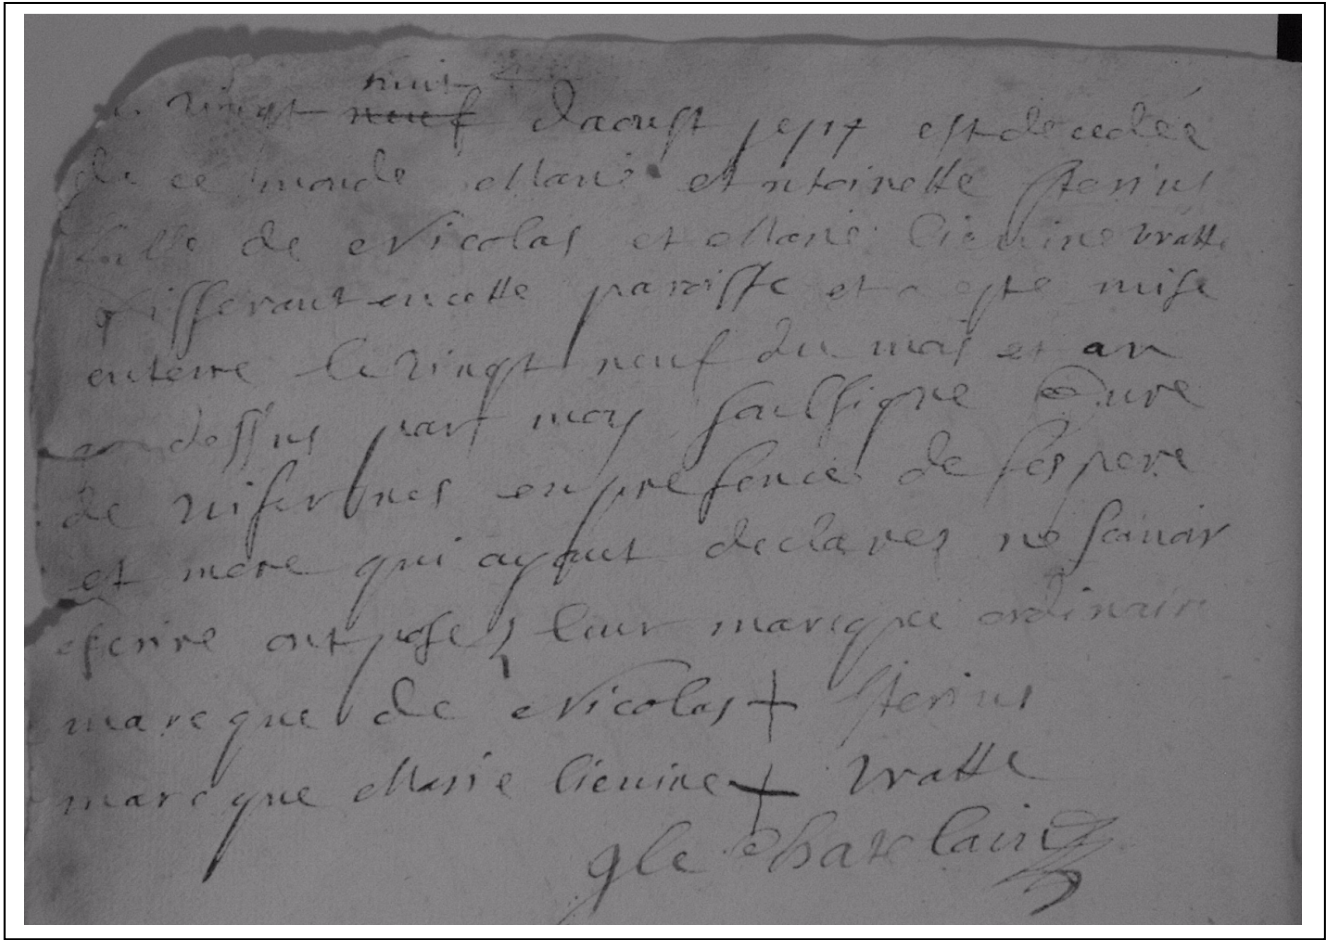 vingt neuf huit daoust 1717 est decedée
de ce monde Marie Antoinette Sterins
fille de Nicolas et Marie lieuine vratte
en cette paroisse et a este mise
enterre le vingt neuf du mois et an
dessus par moy soussigne Cure
de en presence de ses pere
et mere qui ayant declares ne scauoir
escrire ont poses leur marcque ordinaire
marcque de Nicolas + Sterins
marcque Marie lieuine + vratte